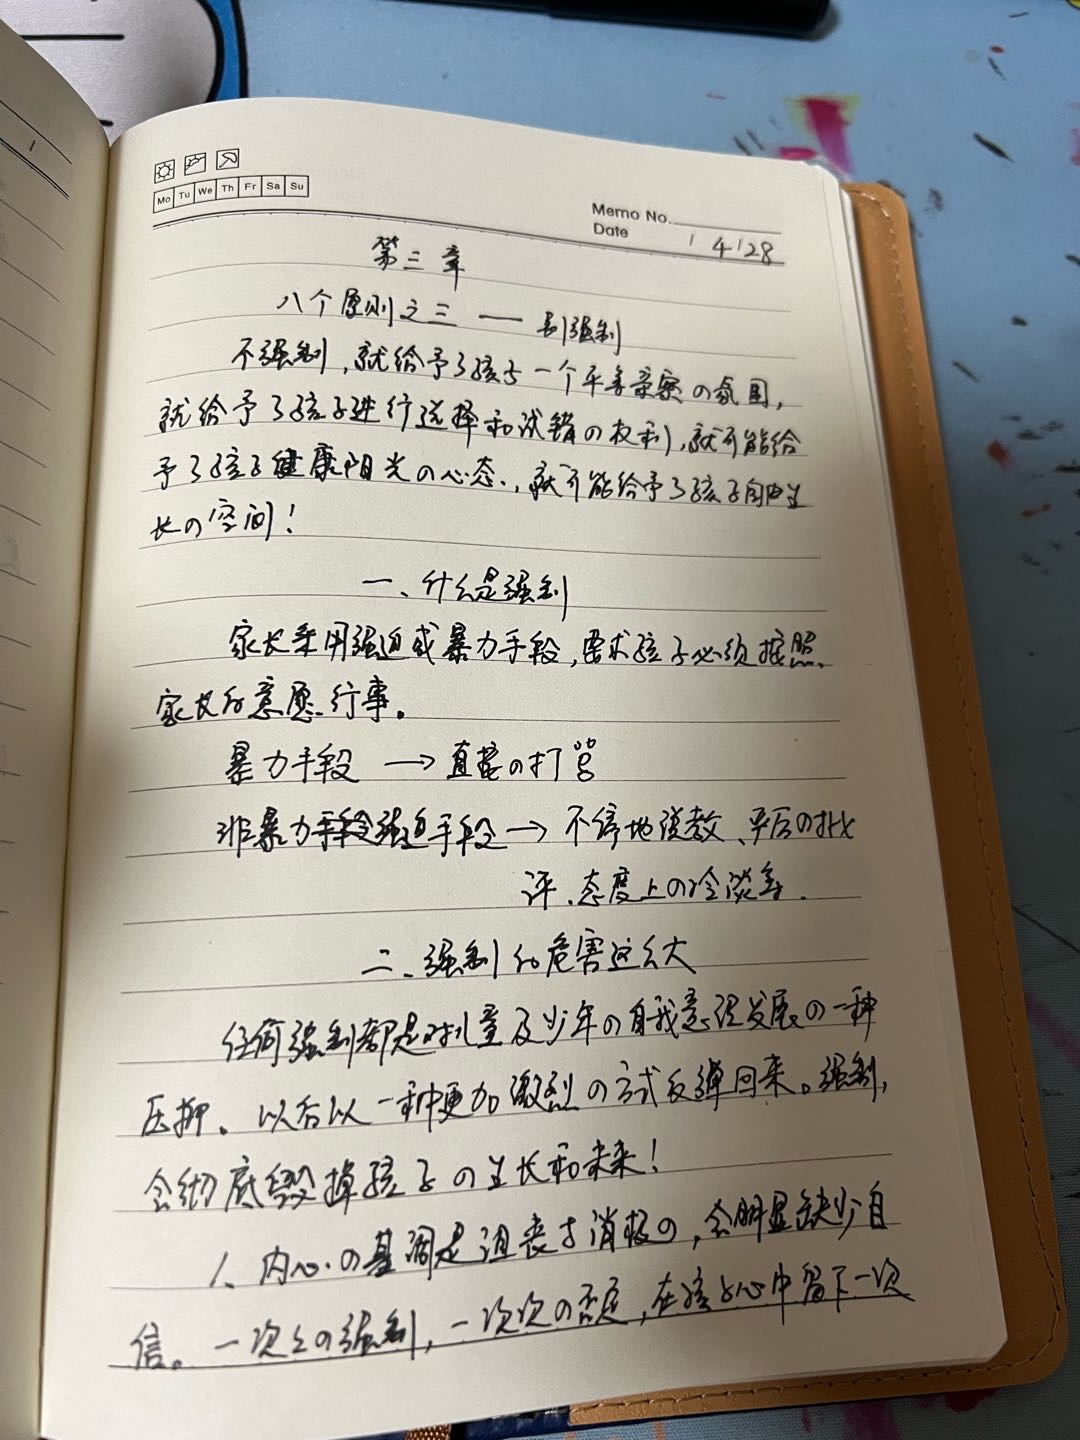 Mo Tu We Th Fr Sa Su
Memo No.
Date 4 28
第三章
八个原则之三 — 别强制
不强制,就给予了孩子一个平等亲密の氛围,
就给予了孩子进行选择和试错の权利,就可能给
予了孩子健康阳光の心态,就可能给予了孩子自由生
长の空间!
一、什么是强制
家长采用强迫或暴力手段,要求孩子必须按照
家长的意愿行事。
暴力手段 → 直接の打骂
非暴力手段强迫手段 → 不停地说教、严厉の批
评、态度上の冷淡等.
二、强制的危害这么大
任何强制都是对儿童及少年の自我意识发展の一种
压抑。以后以一种更加激烈の方式反弹回来。强制,
会彻底毁掉孩子の生长和未来!
1、内心の基调是沮丧与消极の,会明显缺少自
信。一次次の强制,一次次の否定,在孩子心中留下一次